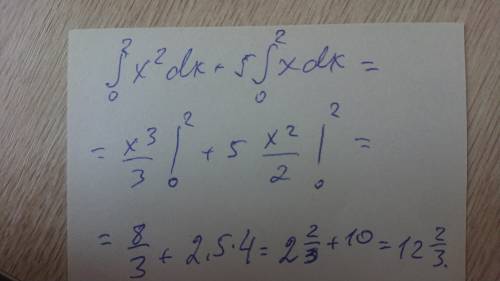 ∫₀² x² dx + 5 ∫₀² x dx =
= x³/3 |₀² + 5 x²/2 |₀² =
= 8/3 + 2,5·4 = 2 2/3 + 10 = 12 2/3.